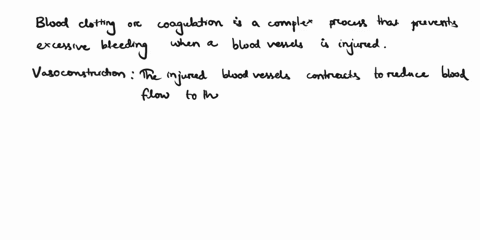 Blood clotting or coagulation is a complex process that prevents
excessive bleeding when a blood vessels is injured.
Vasoconstruction : The injured blood vessels contracts to reduce blood
flow to th